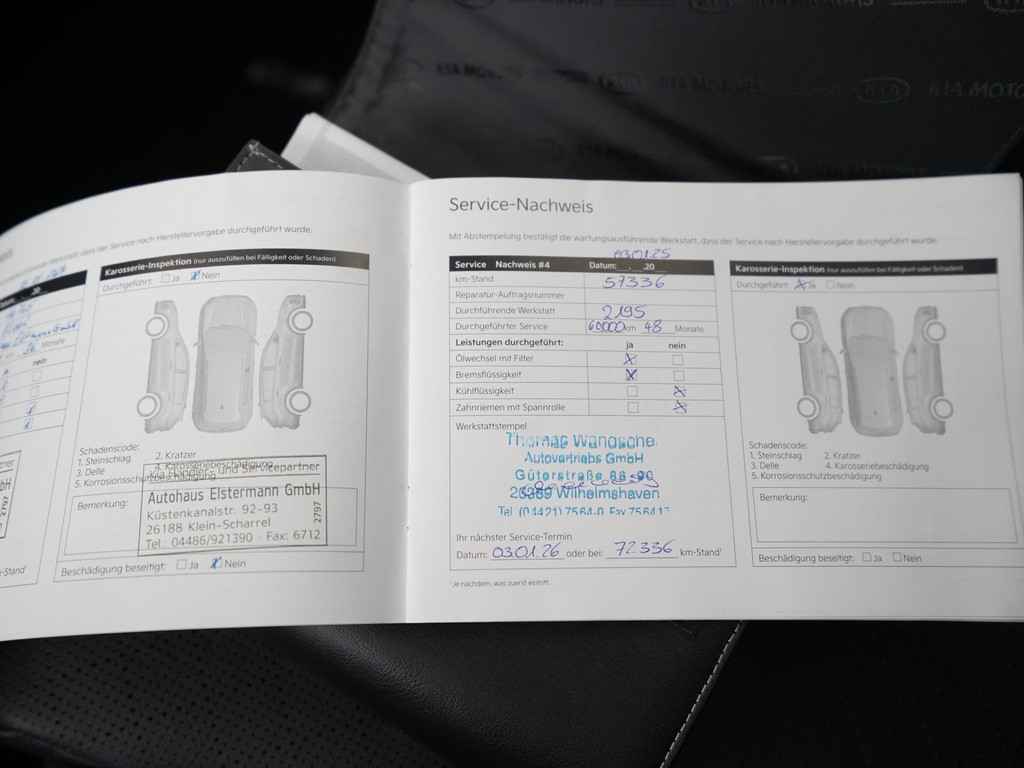 KIA MOTO
Service-Nachweis
Mit Abstempelung bestätigt die wartungsausführende Werkstatt, dass der Service nach Herstellervorgabe durchgeführt wurde.
Werkstatt, dass der Service nach Herstellervorgabe durchgeführt wurde.
Karosserie-Inspektion (nur auszufüllen bei Fälligkeit oder Schaden)
Durchgeführt: Ja Nein
Monate
nein
Schadenscode:
1. Steinschlag 2. Kratzer
3. Delle 4. Karosseriebeschädigung
5. Korrosionsschutzbeschädigung
Kia Händler- und Servicepartner
Autohaus Elstermann GmbH
Küstenkanalstr. 92-93
26188 Klein-Scharrel
Tel.: 04486/921390 · Fax: 6712
2797
Bemerkung:
Beschädigung beseitigt: Ja Nein
Service Nachweis #4 Datum: . .20
03.01.25
km-Stand 57336
Reparatur-Auftragsnummer
Durchführende Werkstatt 2195
Durchgeführter Service 60000 km 48 Monate
Leistungen durchgeführt: ja nein
Ölwechsel mit Filter
Bremsflüssigkeit
Kühlflüssigkeit
Zahnriemen mit Spannrolle
Werkstattstempel
Thomas Wandscher
Autovertriebs GmbH
Güterstraße 86-90
26389 Wilhelmshaven
Tel. (04421) 7564-0 Fax
Ihr nächster Service-Termin
Datum: 03.01.26 oder bei: 72336 km-Stand¹
¹Je nachdem, was zuerst eintritt.
Karosserie-Inspektion (nur auszufüllen bei Fälligkeit oder Schaden)
Durchgeführt: Ja Nein
Schadenscode:
1. Steinschlag 2. Kratzer
3. Delle 4. Karosseriebeschädigung
5. Korrosionsschutzbeschädigung
Bemerkung:
Beschädigung beseitigt: Ja Nein